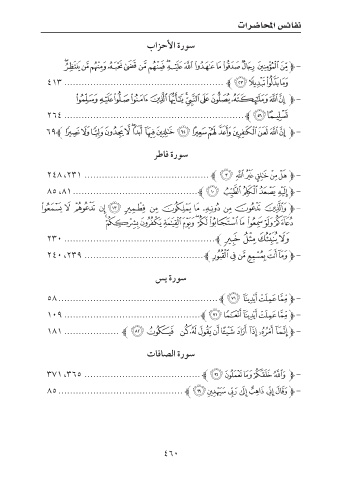 نفائس المحاضرات
سورة الأحزاب
- ﴿ مِّنَ ٱلْمُؤْمِنِينَ رِجَالٌ صَدَقُوا۟ مَا عَٰهَدُوا۟ ٱللَّهَ عَلَيْهِ ۖ فَمِنْهُم مَّن قَضَىٰ نَحْبَهُۥ وَمِنْهُم مَّن يَنتَظِرُ ۖ
وَمَا بَدَّلُوا۟ تَبْدِيلًا ﴿٢٣﴾ ﴾ ........ ٤١٣
- ﴿ إِنَّ ٱللَّهَ وَمَلَٰٓئِكَتَهُۥ يُصَلُّونَ عَلَى ٱلنَّبِىِّ ۚ يَٰٓأَيُّهَا ٱلَّذِينَ ءَامَنُوا۟ صَلُّوا۟ عَلَيْهِ وَسَلِّمُوا۟
تَسْلِيمًا ﴿٥٦﴾ ﴾ ........ ٢٦٤
- ﴿ إِنَّ ٱللَّهَ لَعَنَ ٱلْكَٰفِرِينَ وَأَعَدَّ لَهُمْ سَعِيرًا ﴿٦٤﴾ خَٰلِدِينَ فِيهَآ أَبَدًا ۖ لَّا يَجِدُونَ وَلِيًّا وَلَا نَصِيرًا ﴾ ٦٩
سورة فاطر
- ﴿ هَلْ مِنْ خَٰلِقٍ غَيْرُ ٱللَّهِ ﴿٣﴾ ﴾ ........ ٢٣١، ٢٤٨
- ﴿ إِلَيْهِ يَصْعَدُ ٱلْكَلِمُ ٱلطَّيِّبُ ﴿١٠﴾ ﴾ ........ ٨١، ٨٥
- ﴿ وَٱلَّذِينَ تَدْعُونَ مِن دُونِهِۦ مَا يَمْلِكُونَ مِن قِطْمِيرٍ ﴿١٣﴾ إِن تَدْعُوهُمْ لَا يَسْمَعُوا۟
دُعَآءَكُمْ وَلَوْ سَمِعُوا۟ مَا ٱسْتَجَابُوا۟ لَكُمْ ۖ وَيَوْمَ ٱلْقِيَٰمَةِ يَكْفُرُونَ بِشِرْكِكُمْ ۚ
وَلَا يُنَبِّئُكَ مِثْلُ خَبِيرٍ ﴾ ........ ٢٣٠
- ﴿ وَمَآ أَنتَ بِمُسْمِعٍ مَّن فِى ٱلْقُبُورِ ﴿٢٢﴾ ﴾ ........ ٢٣٩، ٢٤٠
سورة يس
- ﴿ مِّمَّا عَمِلَتْ أَيْدِينَآ ﴿٧١﴾ ﴾ ........ ٥٨
- ﴿ مِّمَّا عَمِلَتْ أَيْدِينَآ أَنْعَٰمًا ﴿٧١﴾ ﴾ ........ ١٠٩
- ﴿ إِنَّمَآ أَمْرُهُۥٓ إِذَآ أَرَادَ شَيْـًٔا أَن يَقُولَ لَهُۥ كُن فَيَكُونُ ﴿٨٢﴾ ﴾ ........ ١٨١
سورة الصافات
- ﴿ وَٱللَّهُ خَلَقَكُمْ وَمَا تَعْمَلُونَ ﴿٩٦﴾ ﴾ ........ ٣٦٥، ٣٧١
- ﴿ وَقَالَ إِنِّى ذَاهِبٌ إِلَىٰ رَبِّى سَيَهْدِينِ ﴿٩٩﴾ ﴾ ........ ٨٥
٤٦٠